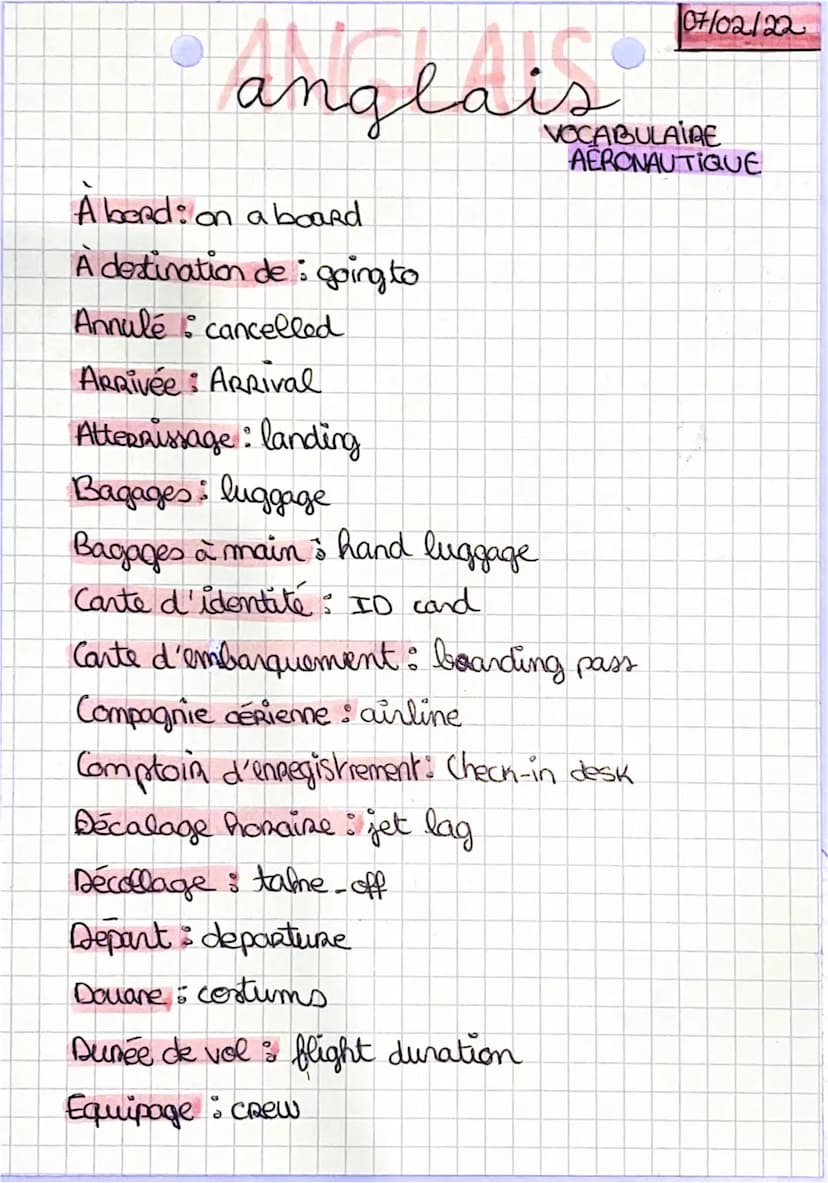 07/02/22
ANGLAIS
anglais
VOCABULAIRE
AÉRONAUTIQUE
À bord : on a board
À destination de : going to
Annulé : cancelled
Arrivée : Arrival
Atterrissage : landing
Bagages : luggage
Bagages à main : hand luggage
Carte d'identité : ID card
Carte d'embarquement : boarding pass
Compagnie aérienne : airline
Comptoir d'enregistrement : Check-in desk
Décalage horaire : jet lag
Décollage : take-off
Départ : departure
Douane : costums
Durée de vol : flight duration
Equipage : crew